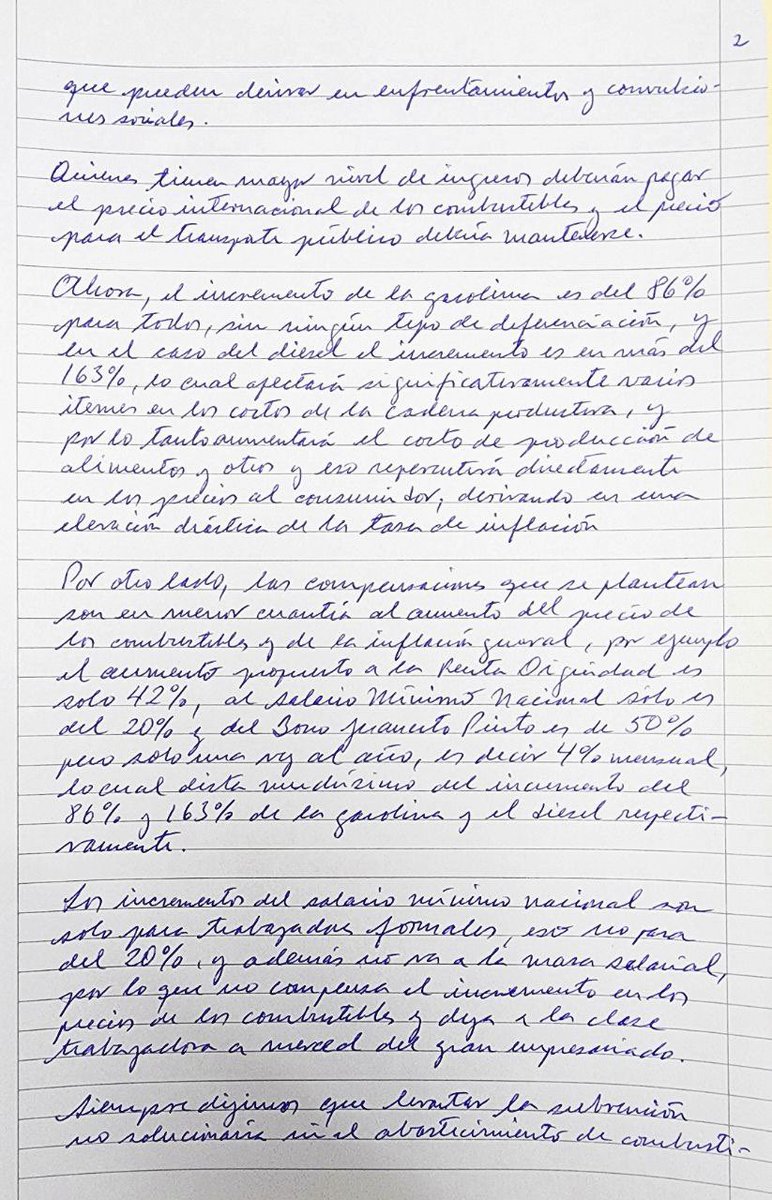 2
que pueden derivar en enfrentamientos y convulsio-
nes sociales.
Quienes tienen mayor nivel de ingresos deberán pagar
el precio internacional de los combustibles y el precio
para el transporte público debería mantenerse.
Ahora, el incremento de la gasolina es del 86%
para todos, sin ningún tipo de diferenciación, y
en el caso del diesel el incremento es en más del
163%, lo cual afectará significativamente varios
itemes en los costos de la cadena productiva, y
por lo tanto aumentará el costo de producción de
alimentos y otros y eso repercutirá directamente
en los precios al consumidor, derivando en una
elevación drástica de la tasa de inflación
Por otro lado, las compensaciones que se plantean
son en menor cuantía al aumento del precio de
los combustibles y de la inflación general, por ejemplo
el aumento propuesto a la Renta Dignidad es
solo 42%, al Salario Mínimo Nacional sólo es
del 20% y del Bono Juancito Pinto es de 50%
pero solo una vez al año, es decir 4% mensual,
lo cual dista muchísimo del incremento del
86% y 163% de la gasolina y el diesel respecti-
vamente.
Los incrementos del salario mínimo nacional son
solo para trabajadores formales, eso no pasa
del 20%, y además no va a la masa salarial,
por lo que no compensa el incremento en los
precios de los combustibles y deja a la clase
trabajadora a merced del gran empresariado.
Siempre dijimos que levantar la subvención
no solucionaría ni el abastecimiento de combusti-